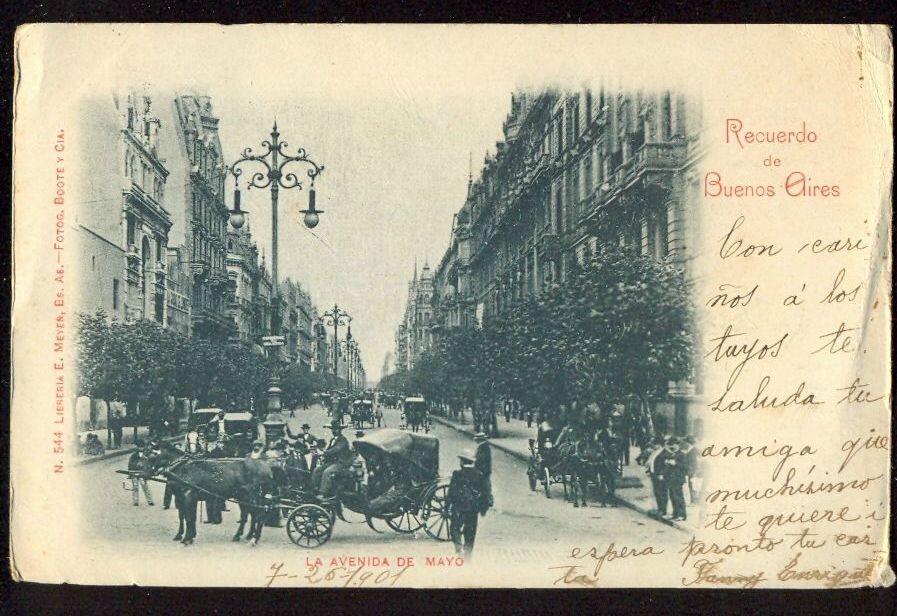 Recuerdo
de
Buenos Aires
Con cari
ños á los
tuyos te
saluda tu
amiga que
muchísimo
te quiere i
espera pronto tu car
ta Fanny Enriqu
LA AVENIDA DE MAYO
N. 544 LIBRERIA E. MEYER, BS. AS.—FOTOG. BOOTE Y CIA.